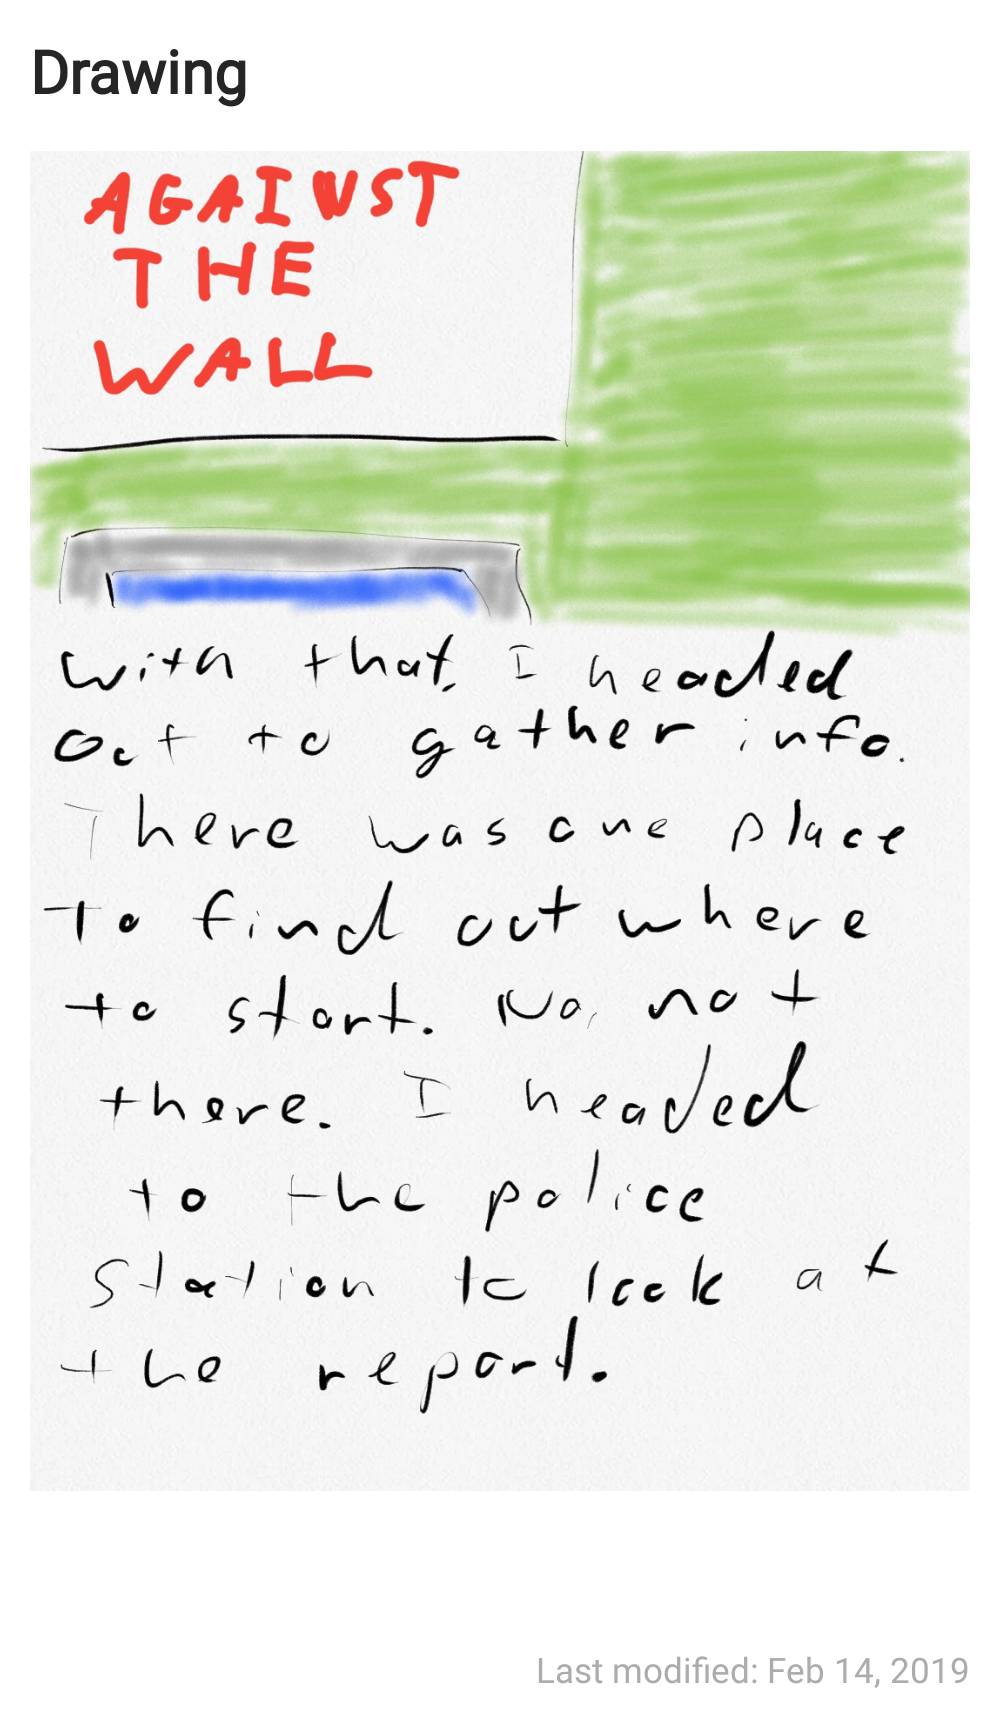 Drawing
AGAINST
THE
WALL
with that, I headed
out to gather info.
There was one place
to find out where
to start. No, not
there. I headed
to the police
station to look at
the report.
Last modified: Feb 14, 2019